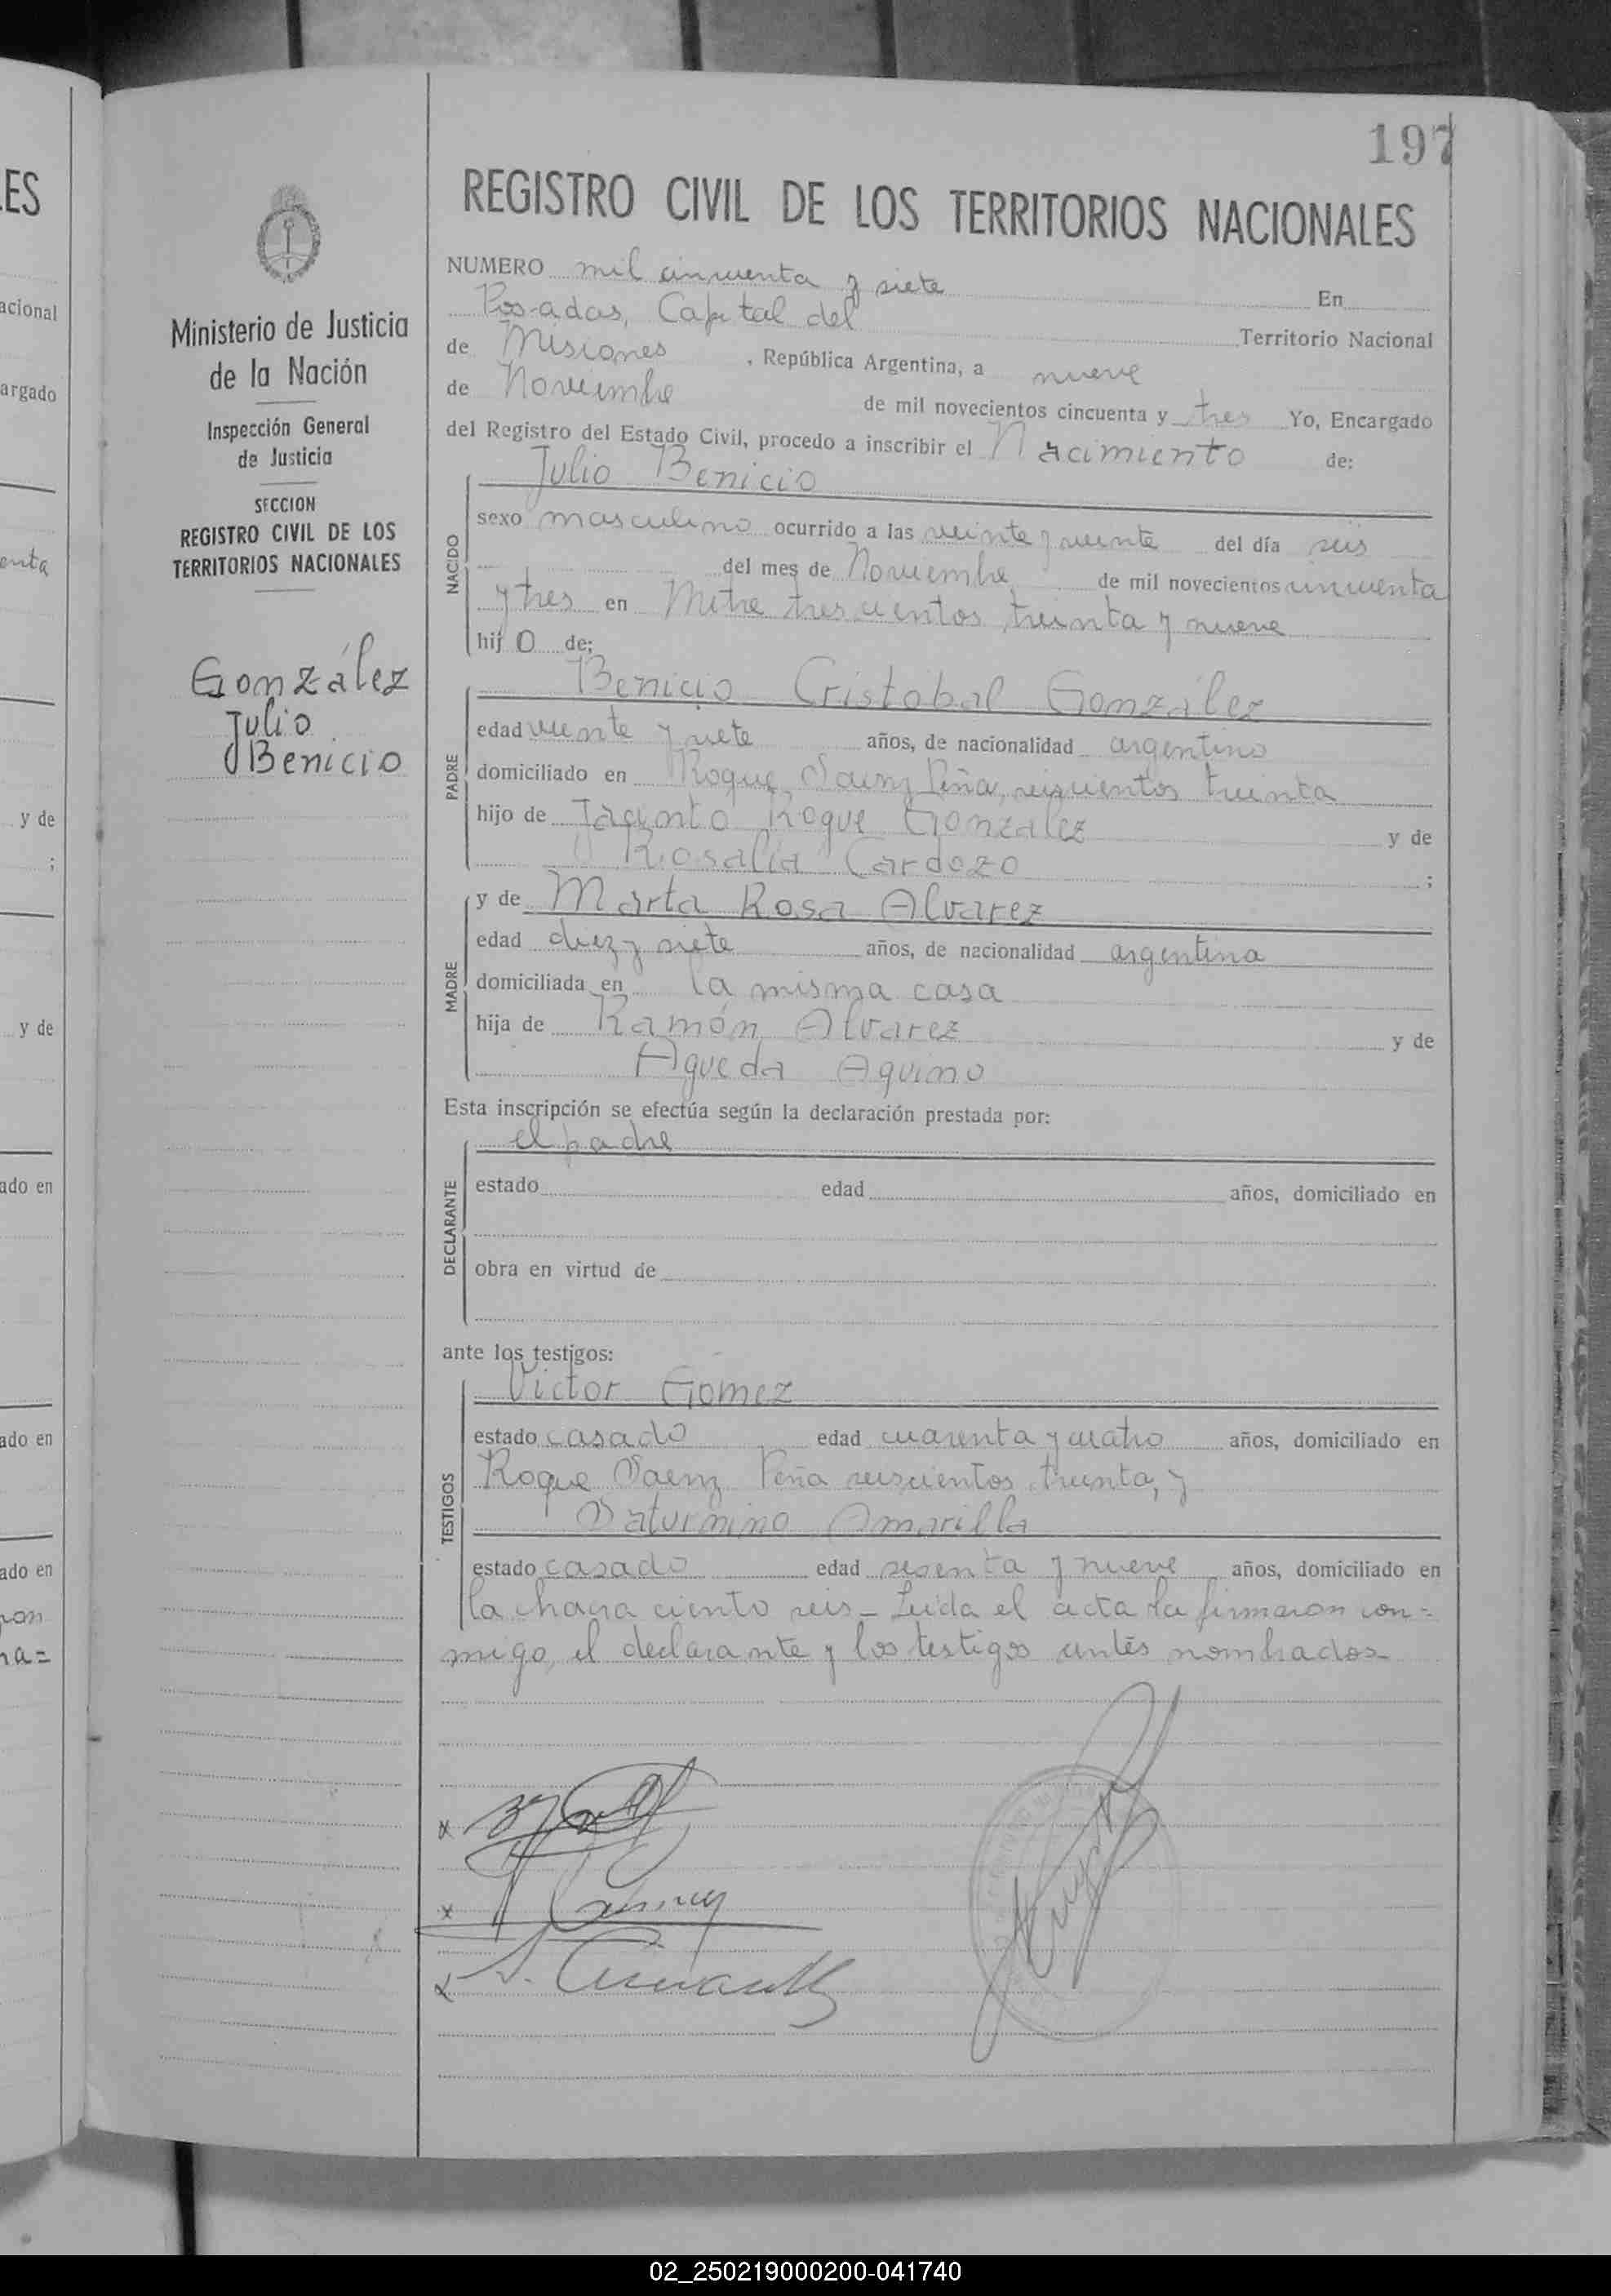 197
REGISTRO CIVIL DE LOS TERRITORIOS NACIONALES
Ministerio de Justicia
de la Nación
Inspección General
de Justicia
SECCION
REGISTRO CIVIL DE LOS
TERRITORIOS NACIONALES
González
Julio
Benicio
NUMERO mil cincuenta y siete En
Posadas, Capital del Territorio Nacional
de Misiones, República Argentina, a nueve
de Noviembre de mil novecientos cincuenta y tres Yo, Encargado
del Registro del Estado Civil, procedo a inscribir el Nacimiento de:
Julio Benicio
NACIDO
sexo masculino ocurrido a las veinte y veinte del día seis
del mes de Noviembre de mil novecientos cincuenta
y tres en Mitre trescientos treinta y nueve
hijo de;
Benicio Cristobal González
PADRE
edad veinte y siete años, de nacionalidad argentino
domiciliado en Roque Saenz Peña, seiscientos treinta
hijo de Jacinto Roque González y de
Rosalía Cardozo ;
y de Marta Rosa Alvarez
MADRE
edad diez y siete años, de nacionalidad argentina
domiciliada en la misma casa
hija de Ramón Alvarez y de
Agueda Aquino
Esta inscripción se efectúa según la declaración prestada por:
el padre
DECLARANTE
estado edad años, domiciliado en
obra en virtud de
ante los testigos:
Victor Gomez
TESTIGOS
estado casado edad cuarenta y cuatro años, domiciliado en
Roque Saenz Peña seiscientos treinta, y
Saturnino Amarilla
estado casado edad sesenta y nueve años, domiciliado en
la chacra ciento seis - Leida el acta la firmaron con=
migo, el declarante y los testigos antes nombrados-
ES
acional
argado
enta
y de
;
y de
ado en
ado en
ado en
ron
na=
02_250219000200-041740